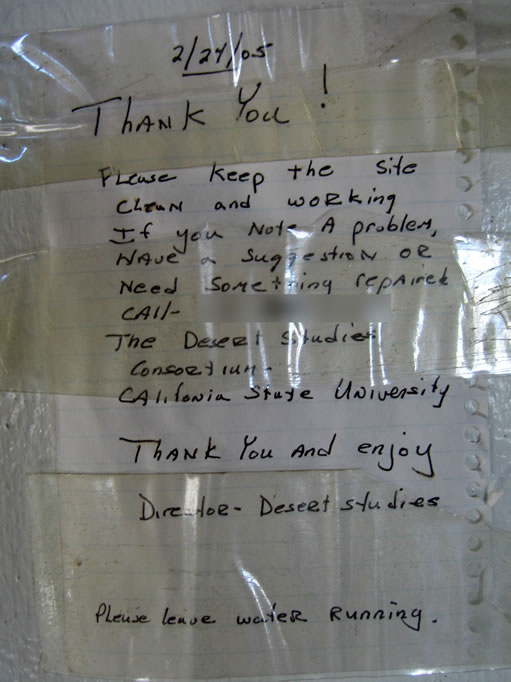 2/27/05
THANK You!
Please Keep the Site
Clean and working
If you Note A problem,
HAve a Suggestion OR
Need Something repaired
CAll-
The Desert Studies
Consortium-
CAlifonia State University
THANK You And enjoy
Director- Desert studies
Please leave water Running.